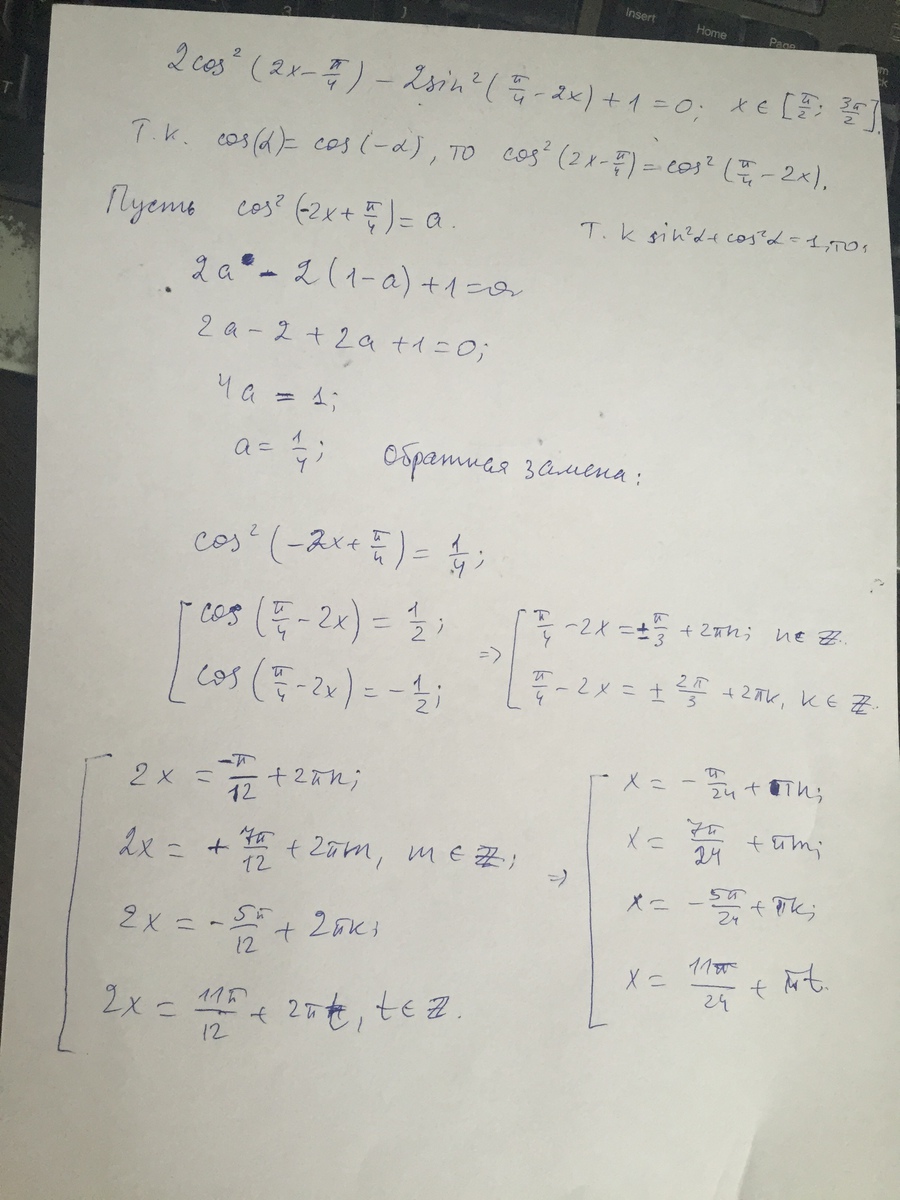 Insert Home Page
2cos² (2x - π/4) - 2sin² (π/4 - 2x) + 1 = 0; x ∈ [π/2; 3π/2].
Т.к. cos(α) = cos(-α), то cos² (2x - π/4) = cos² (π/4 - 2x).
Пусть cos² (-2x + π/4) = a.
Т.к sin²α + cos²α = 1, то,
2a - 2(1 - a) + 1 = 0
2a - 2 + 2a + 1 = 0;
4a = 1;
a = 1/4; Обратная замена:
cos² (-2x + π/4) = 1/4;
cos (π/4 - 2x) = 1/2; => π/4 - 2x = ± π/3 + 2πn; n ∈ ℤ.
cos (π/4 - 2x) = - 1/2; π/4 - 2x = ± 2π/3 + 2πk, k ∈ ℤ.
2x = -π/12 + 2πn; x = - π/24 + πn;
2x = + 7π/12 + 2πm, m ∈ ℤ; => x = 7π/24 + πm;
2x = - 5π/12 + 2πk; x = - 5π/24 + πk;
2x = 11π/12 + 2πt, t ∈ ℤ. x = 11π/24 + πt.